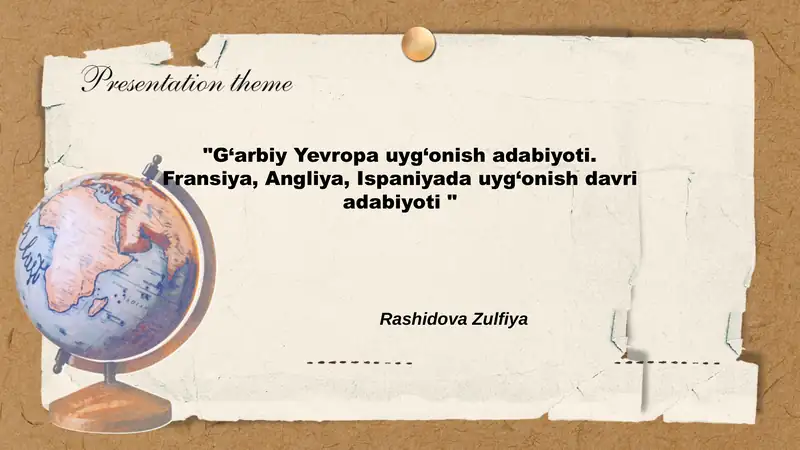 Presentation theme
"G‘arbiy Yevropa uyg‘onish adabiyoti.
Fransiya, Angliya, Ispaniyada uyg‘onish davri
adabiyoti "
Rashidova Zulfiya